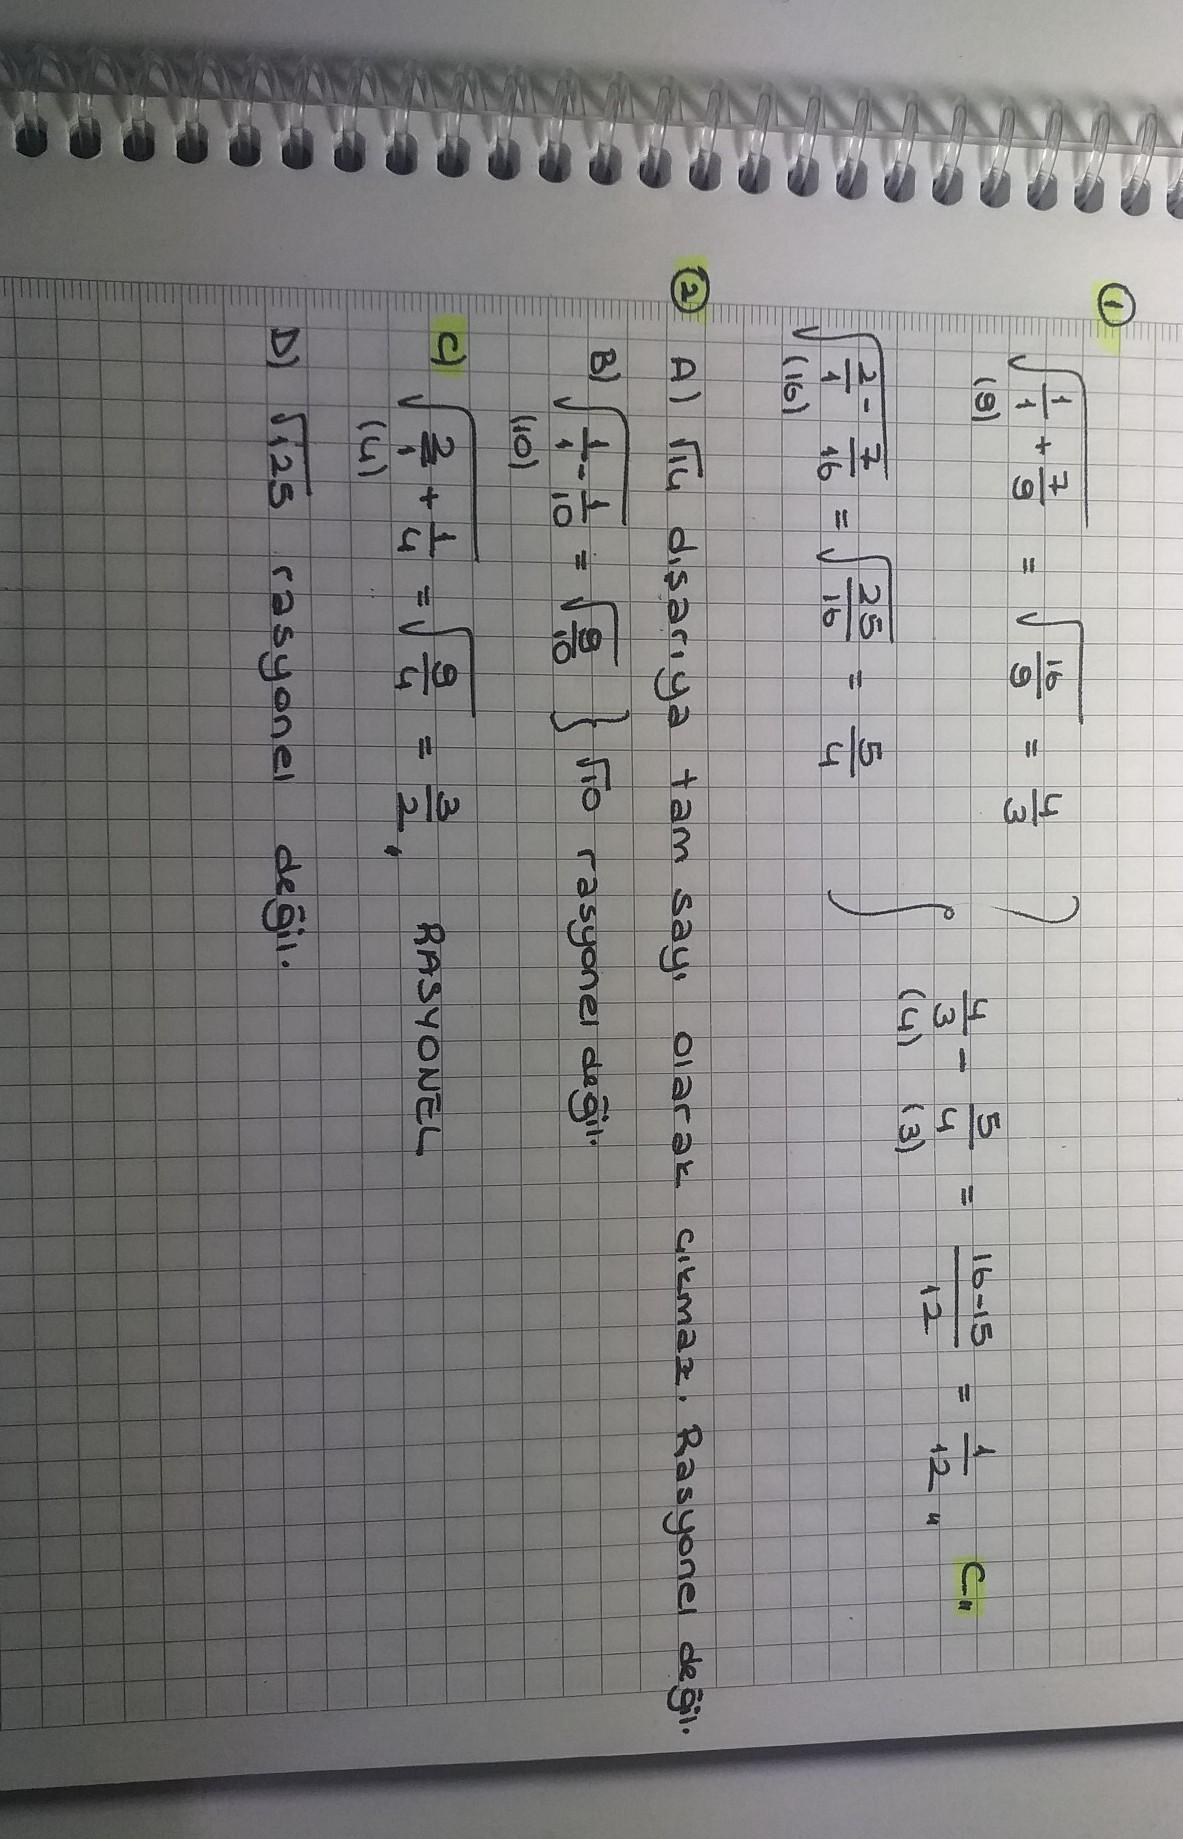 ①
√(1/1 + 7/9) = √(16/9) = 4/3
(9)
√(2/1 - 7/16) = √(25/16) = 5/4
(16)
4/3 - 5/4 = (16-15)/12 = 1/12 " C"
(4) (3)
② A) √14 dışarıya tam sayı olarak çıkmaz. Rasyonel değil.
B) √(1/1 - 1/10) = √(9/10) } √10 rasyonel değil.
(10)
C) √(2/1 + 1/4) = √(9/4) = 3/2, RASYONEL
(4)
D) √125 rasyonel değil.